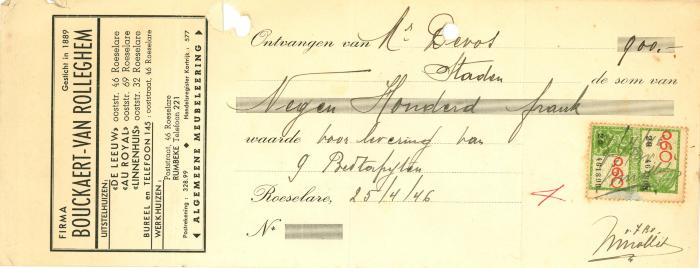 FIRMA Gesticht in 1889
BOUCKAERT-VAN ROLLEGHEM
UITSTELHUIZEN:
«DE LEEUW» ooststr. 46 Roeselare
«AU ROYAL» ooststr. 69 Roeselare
«LINNENHUIS» ooststr. 32 Roeselare
BUREEL en TELEFOON 145 : ooststraat, 46 Roeselare
WERKHUIZEN:
Poststraat, 46 Roeselare
RUMBEKE Telefoon 221
Postrekening : 328.99 Handelsregister Kortrijk : 577
ALGEMEENE MEUBELEERING
Ontvangen van Mr Devos 900.-
Staden de som van
Negen Honderd frank
waarde voor levering van
9
Roeselare, 25/4/46
No
0,60
0,60